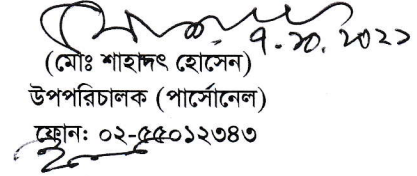 ৭.১০.২০২১
(মোঃ শাহাদৎ হোসেন)
উপপরিচালক (পার্সোনেল)
ফোন: ০২-৫৫০১২৩৪৩